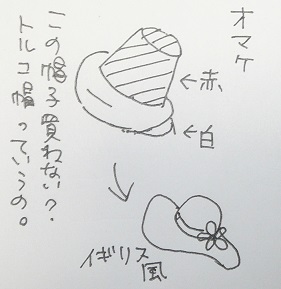 オマケ
←赤
←白
この帽子買わない？
トルコ帽っていうの。
イギリス
風